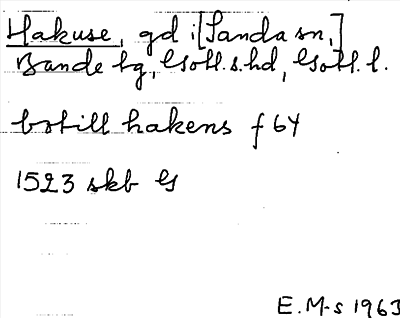 Hakuse, gd i [Sanda sn,]
Bande tg, Gotl.s.hd, Gotl.l.
botill hakens f 64
1523 skb G
E.M-s 1963